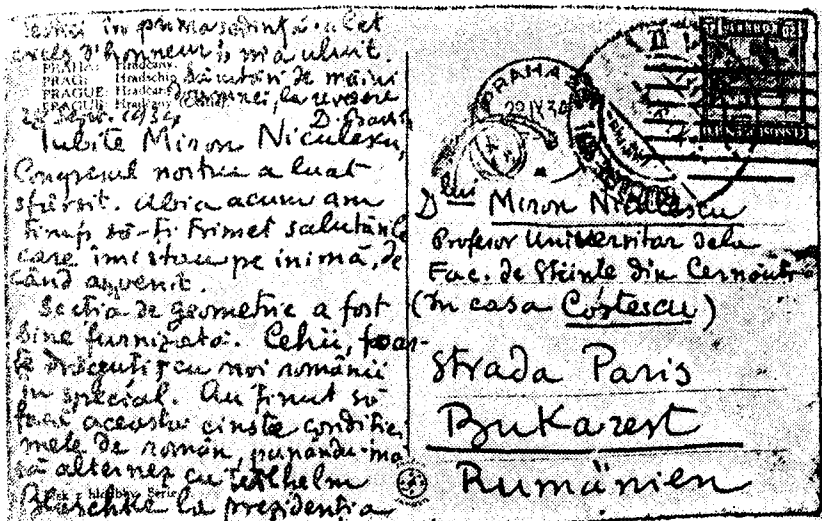 secții în prima ședință. Acet
exces d'honneur m'a uluit.
PRAHA: Hradčany.
PRAG: Hradschin
PRAGUE: Hradčany
PRAGUE: Hradčany
Sărutări de mâini
doamnei, la revedere
Sept. 1934
Iubite Miron Nicolescu,
Congresul nostru a luat
sfârșit. Abia acum am
timp să-ți trimet salutările
care îmi stau pe inimă, de
când am venit.
Secția de geometrie a fost
bine furnizată. Cehii, foar-
te drăguți cu noi românii
în special. Au ținut să
facă aceasta cinste condiției
mele de român, punându-mă
să alternez cu Wilhelm
Blaschke la prezidenția
PRAHA
22 IX 34
D-lui Miron Nicolescu
Profesor Universitar dela
Fac. de Științe din Cernăuți
(în casa Costescu)
Strada Paris
Bukarest
Rumänien